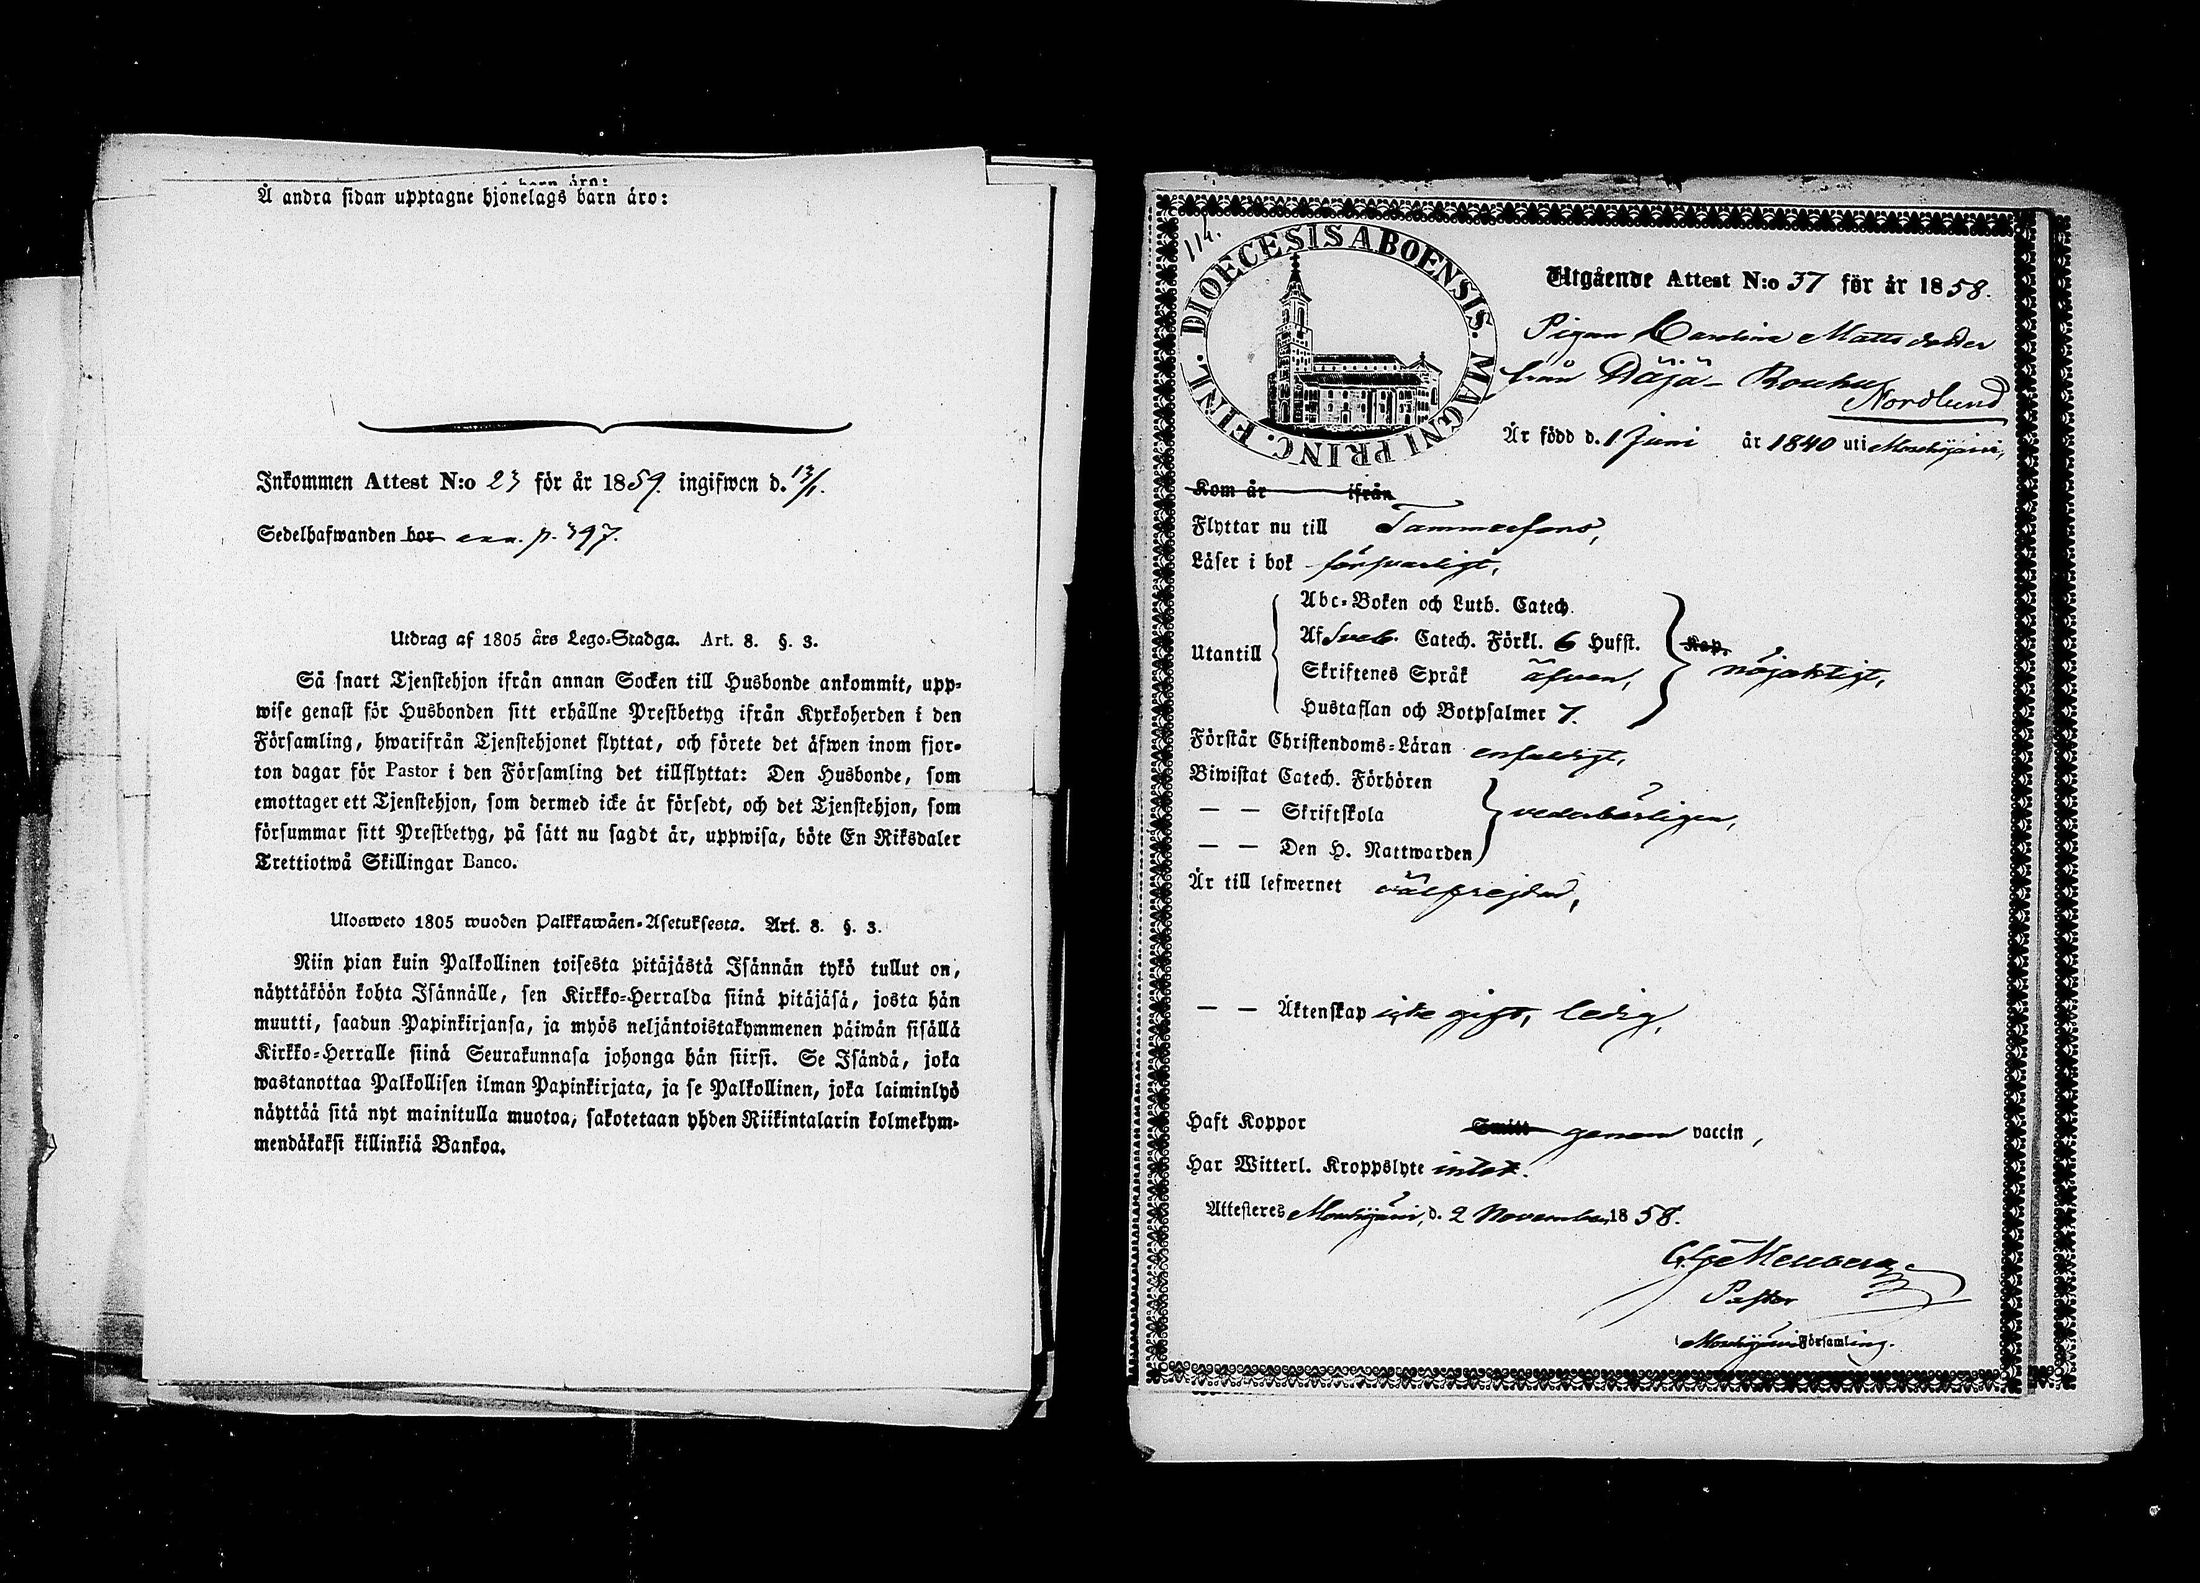 Å andra sidan upptagne hjonelags barn äro:
Inkommen Attest N:o 23 för år 1859. ingifwen d. 13/1.
Sedelhafwanden bor p. 397.
Utdrag af 1805 års Lego-Stadga. Art. 8. §. 3.
Så snart Tjenstehjon ifrån annan Socken till Husbonde ankommit, upp-
wise genast för Husbonden sitt erhållne Prestbetyg ifrån Kyrkoherden i den
Församling, hwarifrån Tjenstehjonet flyttat, och förete det äfwen inom fjor-
ton dagar för Pastor i den Församling det tillflyttat: Den Husbonde, som
emottager ett Tjenstehjon, som dermed icke är försedt, och det Tjenstehjon, som
försummar sitt Prestbetyg, på sätt nu sagdt är, uppwisa, böte En Riksdaler
Trettiotwå Skillingar Banco.
Ulosweto 1805 wuoden Palkkawäen-Asetuksesta. Art. 8. §. 3.
Niin pian kuin Palkollinen toisesta pitäjästä Isännän tykö tullut on,
näyttäköön kohta Isännälle, sen Kirkko-Herralda siinä pitäjäsä, josta hän
muutti, saadun Papinkirjansa, ja myös neljäntoistakymmenen päiwän sisällä
Kirkko-Herralle siinä Seurakunnasa johonga hän siirsi. Se Isändä, joka
wastanottaa Palkollisen ilman Papinkirjata, ja se Palkollinen, joka laiminlyö
näyttää sitä nyt mainitulla muotoa, sakotetaan yhden Riikintalarin kolmekym-
mendäkaksi killinkiä Bankoa.
114.
DIOECESIS ABOENSIS. MAGNI PRINC. FINL.
Utgående Attest N:o 37 för år 1858.
Pigan Carolina Matts dotter
från Däjä- Rouhu
Nordlund
Är född d. 1 Juni år 1840 uti Mouhijärvi,
Kom år ifrån
Flyttar nu till Tammerfors,
Läser i bok försvarligt,
Utantill
Abc-Boken och Luth. Catech.
Af Sveb. Catech. Förkl. 6 Hufst.
Skriftenes Språk äfven,
Hustaflan och Botpsalmer 7.
Kap.
nöjaktigt,
Förstår Christendoms-Läran enfaldigt,
Biwistat Catech. Förhören
— — Skriftskola
— — Den H. Nattwarden
vederbörligen,
Är till lefwernet välfrejdad,
— — Äktenskap icke gift, ledig,
Haft Koppor Smitt genom vaccin,
Har Witterl. Kroppslyte intet.
Attesteres Mouhijärvi, d. 2 November 1858.
Mellberg
Pastor
Mouhijärvi Församling.